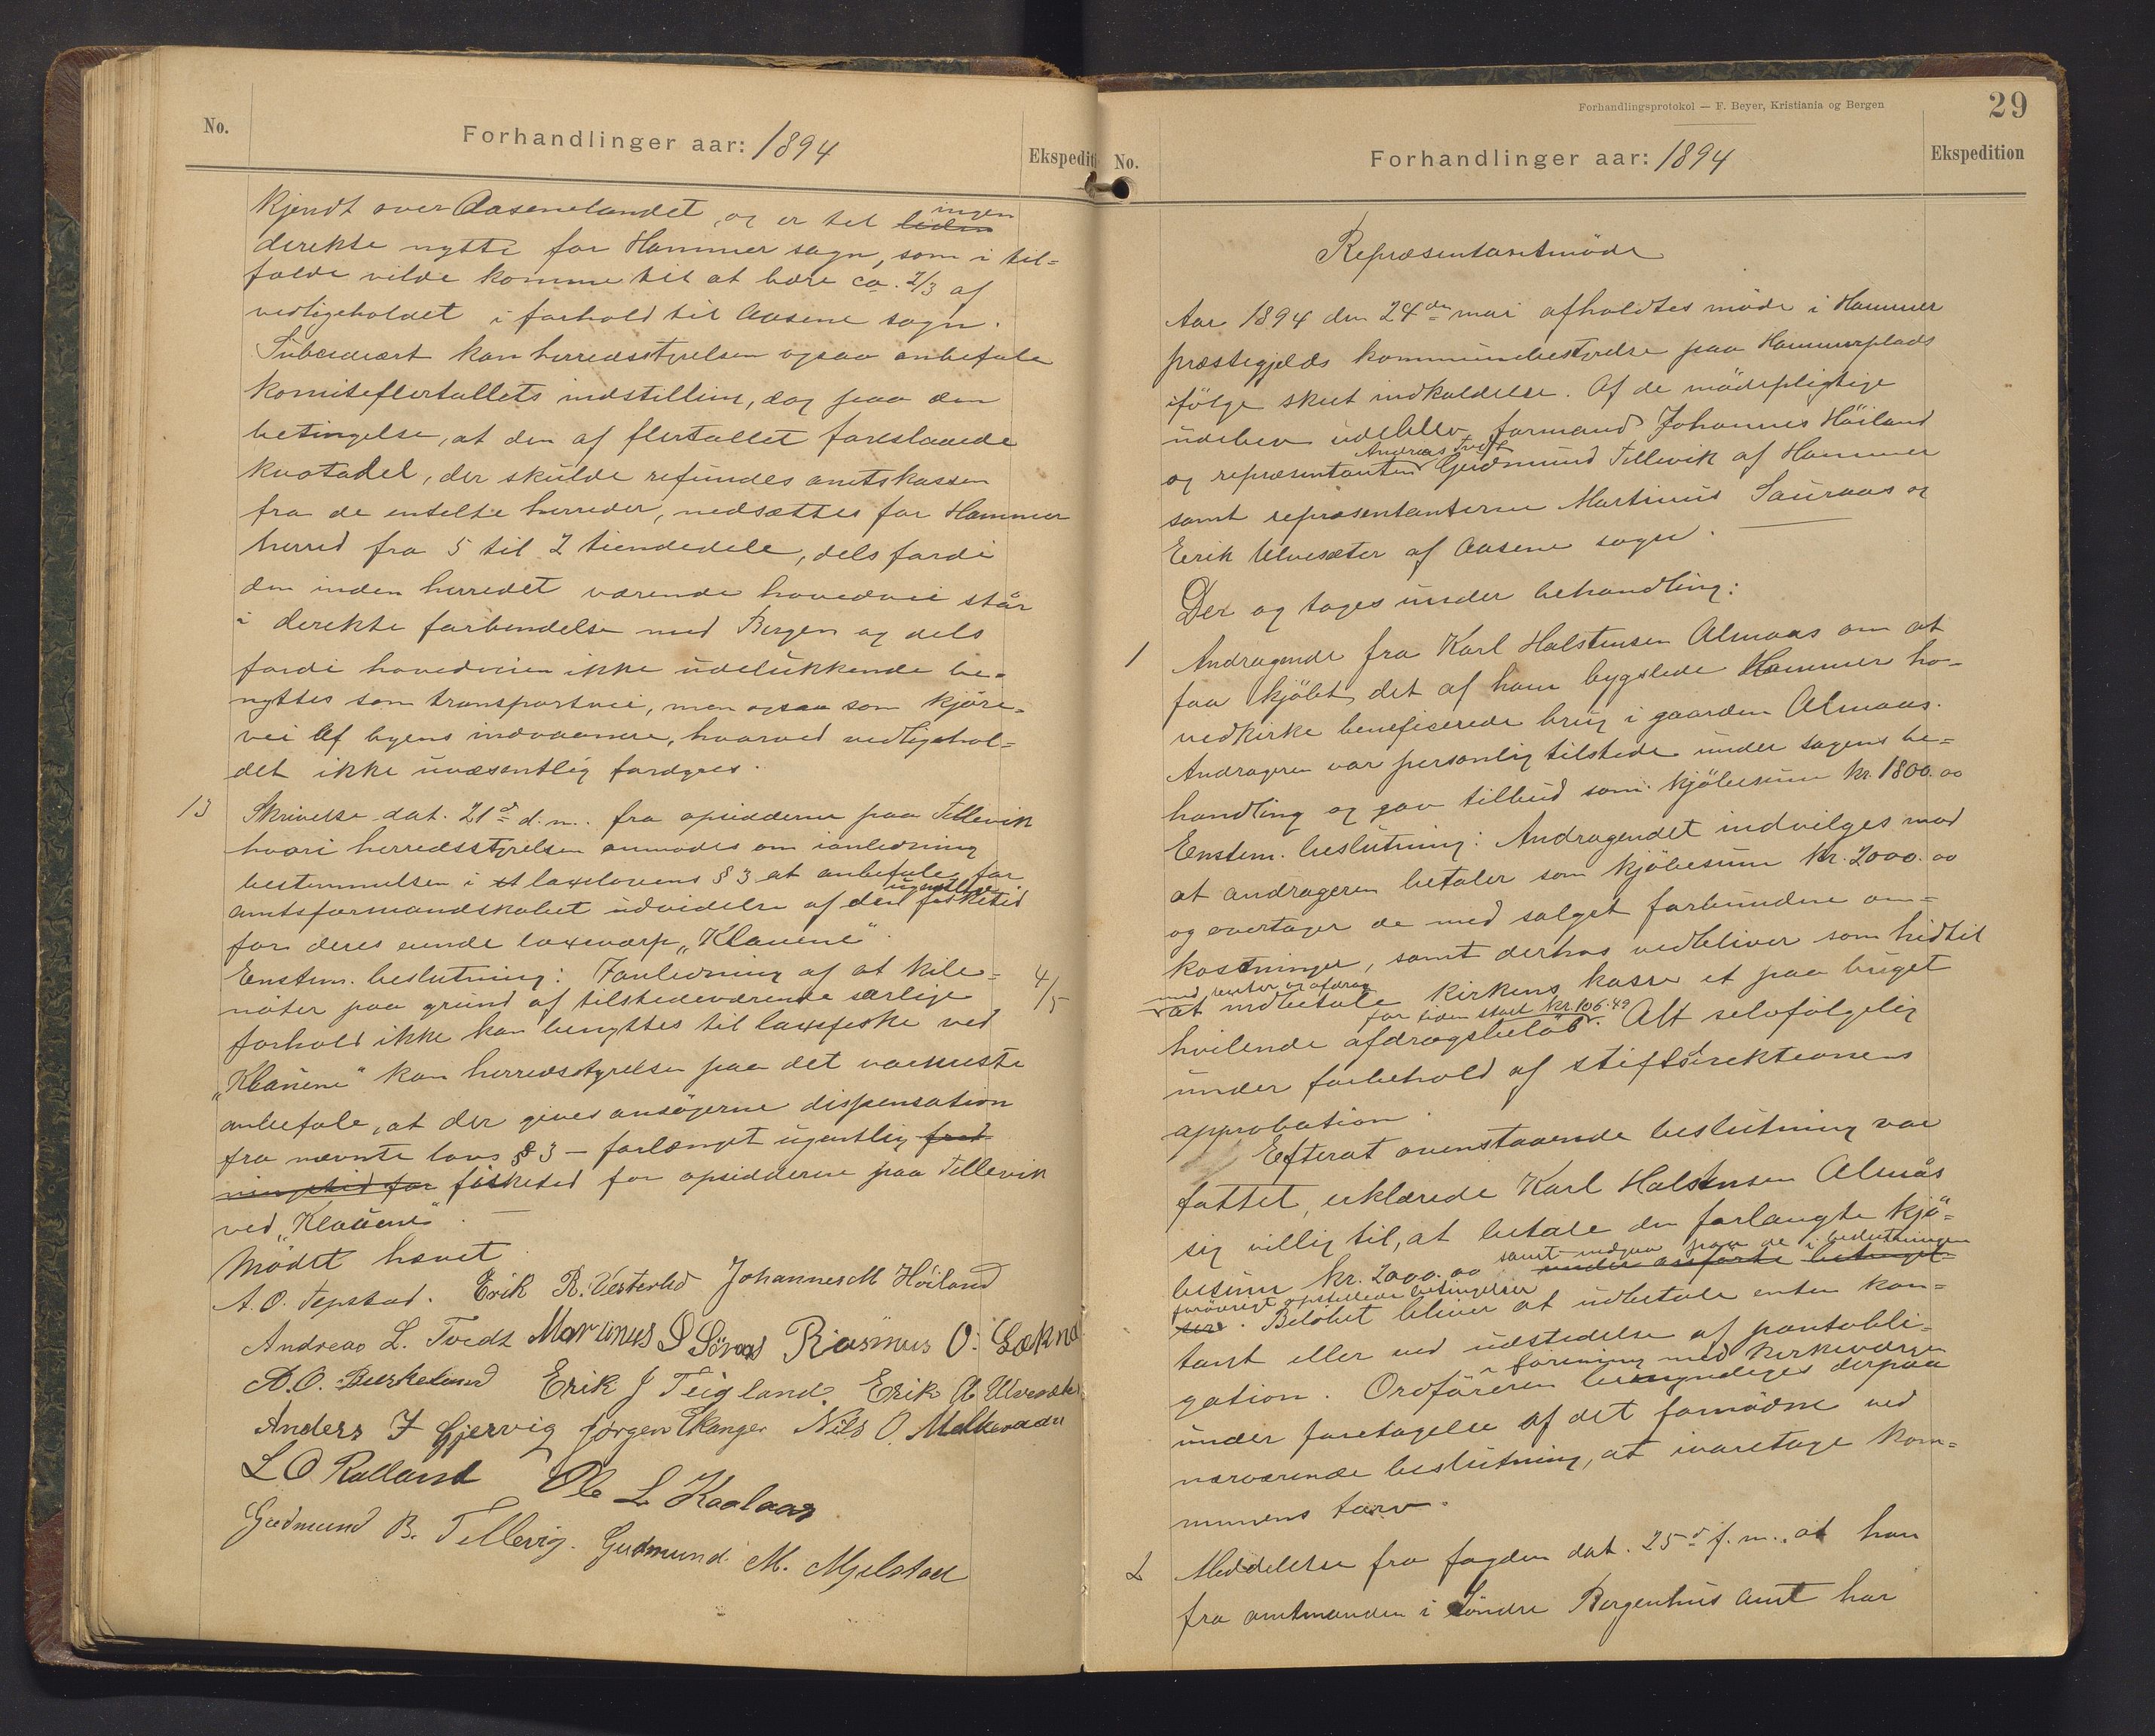 No.
Forhandlinger aar: 1894
Ekspedit
kjendt over Aasenelandet og er til liden ingen
direkte nytte for Hammer sogn, som i til=
fælde vilde komme til at bære ca. 2/3 af
vedligeholdet i forhold til Aasene sogn.
Subsidiært kan herredsstyrelsen ogsaa anbefale
komiteflertallets indstilling, dog paa den
betingelse, at den af flertallet foreslaaede
kvotadel, der skulde refundes amtskassen
fra de enkelte herreder, nedsættes for Hammer
herred fra 5 til 2 tiendedele, dels fordi
den inden herredet værende hovedvei står
i derekte forbindelse med Bergen og dels
fordi hovedveien ikke udelukkende be=
nyttes som transportvei, men ogsaa som kjøre=
vei af byens indvaanere, hvorved vedligehol=
det ikke uvæsentlig fordyres.
13 Skrivelse dat. 21d d.m. fra opsidderne paa Tellevik
hvori herredsstyrelsen anmodes om i anledning
bestemmelsen i laxelovens § 3 at anbefale for
amtsformandskabet udvidelse af den ugentlige fisketid
for deres eiende laxevarp "Klauene".
Enstem. beslutning: I anledning af at kile=
nøter paa grund af tilstedeværende særlige 4/5
forhold ikke kan benyttes til laxefiske ved
"Klauene" kan herredsstyrelsen paa det varmeste
anbefale, at der gives ansøgerne dispensation
fra nævnte lovs § 3 — forlænget ugentlig fred
ningstid for fisketid for opsidderne paa Tellevik
ved "Klauene".
Mödet hævet
A. O. Tepstad. Erik R. Vesterlid Johannes M Höiland
Andreas L. Tvedt Martinus S Söraas Rasmus O. Gekna
A. O. Birkeland Erik J Teigland. Erik A Ulvesæter
Anders J Gjervig Jörgen Skanger Nils O. Melkeraaen
L O Ralland Ole L Kaalaas
Gudmund B. Tellevig. Gudmund M. Mjelstad
Forhandlingsprotokol — F. Beyer, Kristiania og Bergen
29
No.
Forhandlinger aar: 1894
Ekspedition
Repræsentantmöde
Aar 1894 den 24de mai afholdtes möde i Hammer
præstegjelds kommunebestyrelse paa Hammerplads
ifölge skeet indkaldelse. Af de mödepligtige
udeblev formand Johannes Höiland
Andreas Tvedt
og repræsentanten Gudmund Tellevik af Hammer
samt repræsentanterne Martinus Sauraas og
Erik Ulvesæter af Aasene sogn.
Der og toges under behandling:
1 Andragende fra Karl Halstensen Almaas om at
faa kjöbt det af ham bygslede Hammer ho=
vedkirke beneficerede brug i gaarden Almaas.
Andrageren var personlig tilstede under sagens be=
handling og gav tilbud som kjöbesum kr. 1800.00
Enstem. beslutning: Andragendet indvilges mod
at andrageren betaler som kjöbesum kr. 2000.00
og overtager de med salget forbundne om=
kostninger, samt derhos vedbliver som hidtil
med renter og afdrag
at indbetale kirkens kasse et paa bruget
for tiden stort kr. 106.49
hvilende afdragsbelöb. Alt selvfölgelig
under forbehold af stiftsdirektionens
approbation.
Efterat ovenstaaende beslutning var
fattet, erklærede Karl Halstensen Almås
sig villig til, at betale den forlangte kjö=
samt indgaa paa de i beslutningen
besum kr. 2000.00 under anförte betingel
forövrigt opstillede betingelser
ser. Belöbet bliver at udbetale enten kon=
tant eller ved udstedelse af pantobli=
i forening med kirkeværgen
gation. Ordföreren bemyndiges derpaa
under foretagelse af det fornödne ved
nærværende beslutning, at ivaretage kom=
munens tarv.
2 Meddelelse fra fogden dat. 25d f.m., at han
fra amtmanden i Söndre Bergenhus amt har